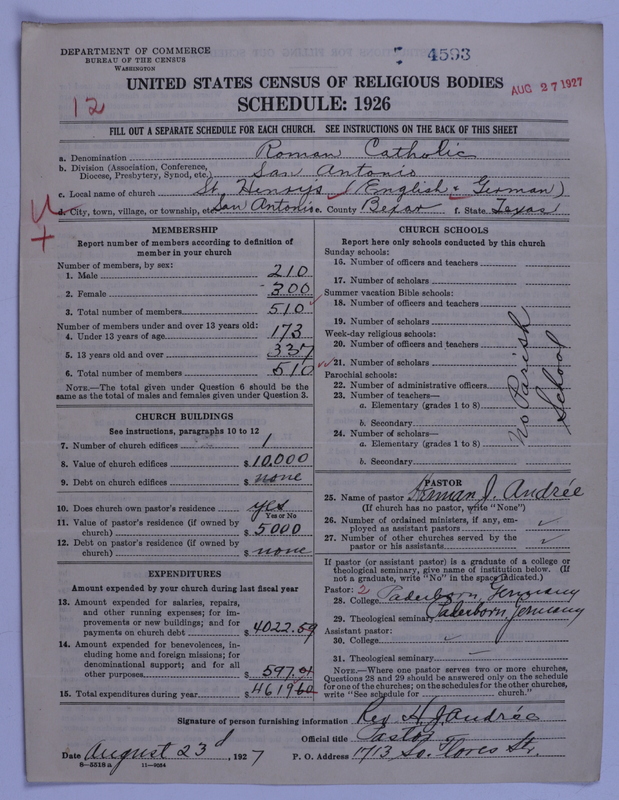 DEPARTMENT OF COMMERCE
BUREAU OF THE CENSUS
WASHINGTON
4593
UNITED STATES CENSUS OF RELIGIOUS BODIES
AUG 27 1927
12
SCHEDULE: 1926
FILL OUT A SEPARATE SCHEDULE FOR EACH CHURCH. SEE INSTRUCTIONS ON THE BACK OF THIS SHEET
a. Denomination Roman Catholic
b. Division (Association, Conference, Diocese, Presbytery, Synod, etc.) San Antonio
c. Local name of church St. Henrys (English & German)
d. City, town, village, or township, etc. San Antonio e. County Bexar f. State Texas
MEMBERSHIP
Report number of members according to definition of
member in your church
Number of members, by sex:
1. Male 210
2. Female 300
3. Total number of members 510
Number of members under and over 13 years old:
4. Under 13 years of age 173
5. 13 years old and over 337
6. Total number of members 510
NOTE.—The total given under Question 6 should be the
same as the total of males and females given under Question 3.
CHURCH BUILDINGS
See instructions, paragraphs 10 to 12
7. Number of church edifices 1
8. Value of church edifices $ 10,000
9. Debt on church edifices $ none
10. Does church own pastor's residence yes
Yes or No
11. Value of pastor's residence (if owned by
church) $ 5000
12. Debt on pastor's residence (if owned by
church) $ none
EXPENDITURES
Amount expended by your church during last fiscal year
13. Amount expended for salaries, repairs,
and other running expenses; for im-
provements or new buildings; and for
payments on church debt $ 4022.59
14. Amount expended for benevolences, in-
cluding home and foreign missions; for
denominational support; and for all
other purposes $ 597.01
15. Total expenditures during year $ 461960
CHURCH SCHOOLS
Report here only schools conducted by this church
Sunday schools:
16. Number of officers and teachers
17. Number of scholars
Summer vacation Bible schools:
18. Number of officers and teachers
19. Number of scholars
Week-day religious schools:
20. Number of officers and teachers
21. Number of scholars
Parochial schools:
22. Number of administrative officers
23. Number of teachers—
a. Elementary (grades 1 to 8)
b. Secondary
24. Number of scholars—
a. Elementary (grades 1 to 8)
b. Secondary
No Parish
School
PASTOR
25. Name of pastor Herman J. Andrée
(If church has no pastor, write "None")
26. Number of ordained ministers, if any, em-
ployed as assistant pastors
27. Number of other churches served by the
pastor or his assistants
If pastor (or assistant pastor) is a graduate of a college or
theological seminary, give name of institution below. (If
not a graduate, write "No" in the space indicated.)
Pastor: 2
28. College Paderborn, Germany
29. Theological seminary Paderborn, Germany
Assistant pastor:
30. College
31. Theological seminary
NOTE.—Where one pastor serves two or more churches,
Questions 28 and 29 should be answered only on the schedule
for one of the churches; on the schedules for the other churches,
write "See schedule for church."
Signature of person furnishing information Rev H. J. Andrée
Official title Pastor
Date August 23d, 1927 P. O. Address 1713 So. Flores Str.
8-5318a 11-9084